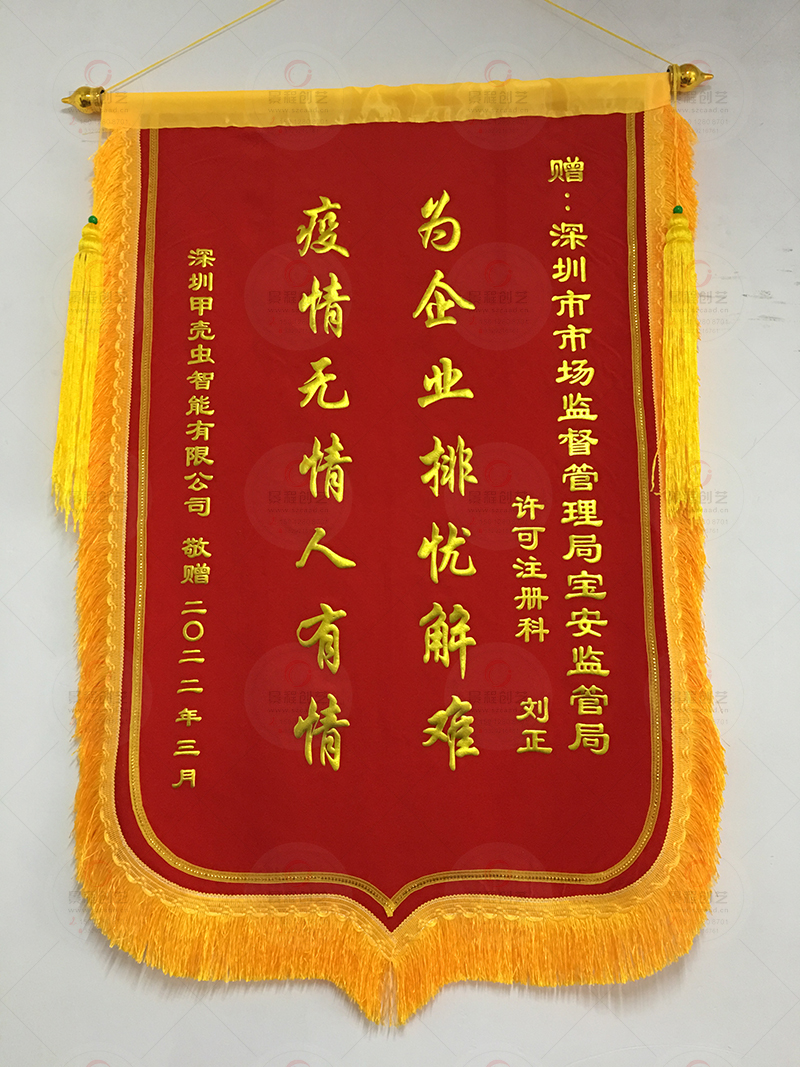 赠：深圳市市场监督管理局宝安监管局
许可注册科 刘正
为企业排忧解难
疫情无情人有情
深圳甲壳虫智能有限公司 敬赠 二〇二二年三月